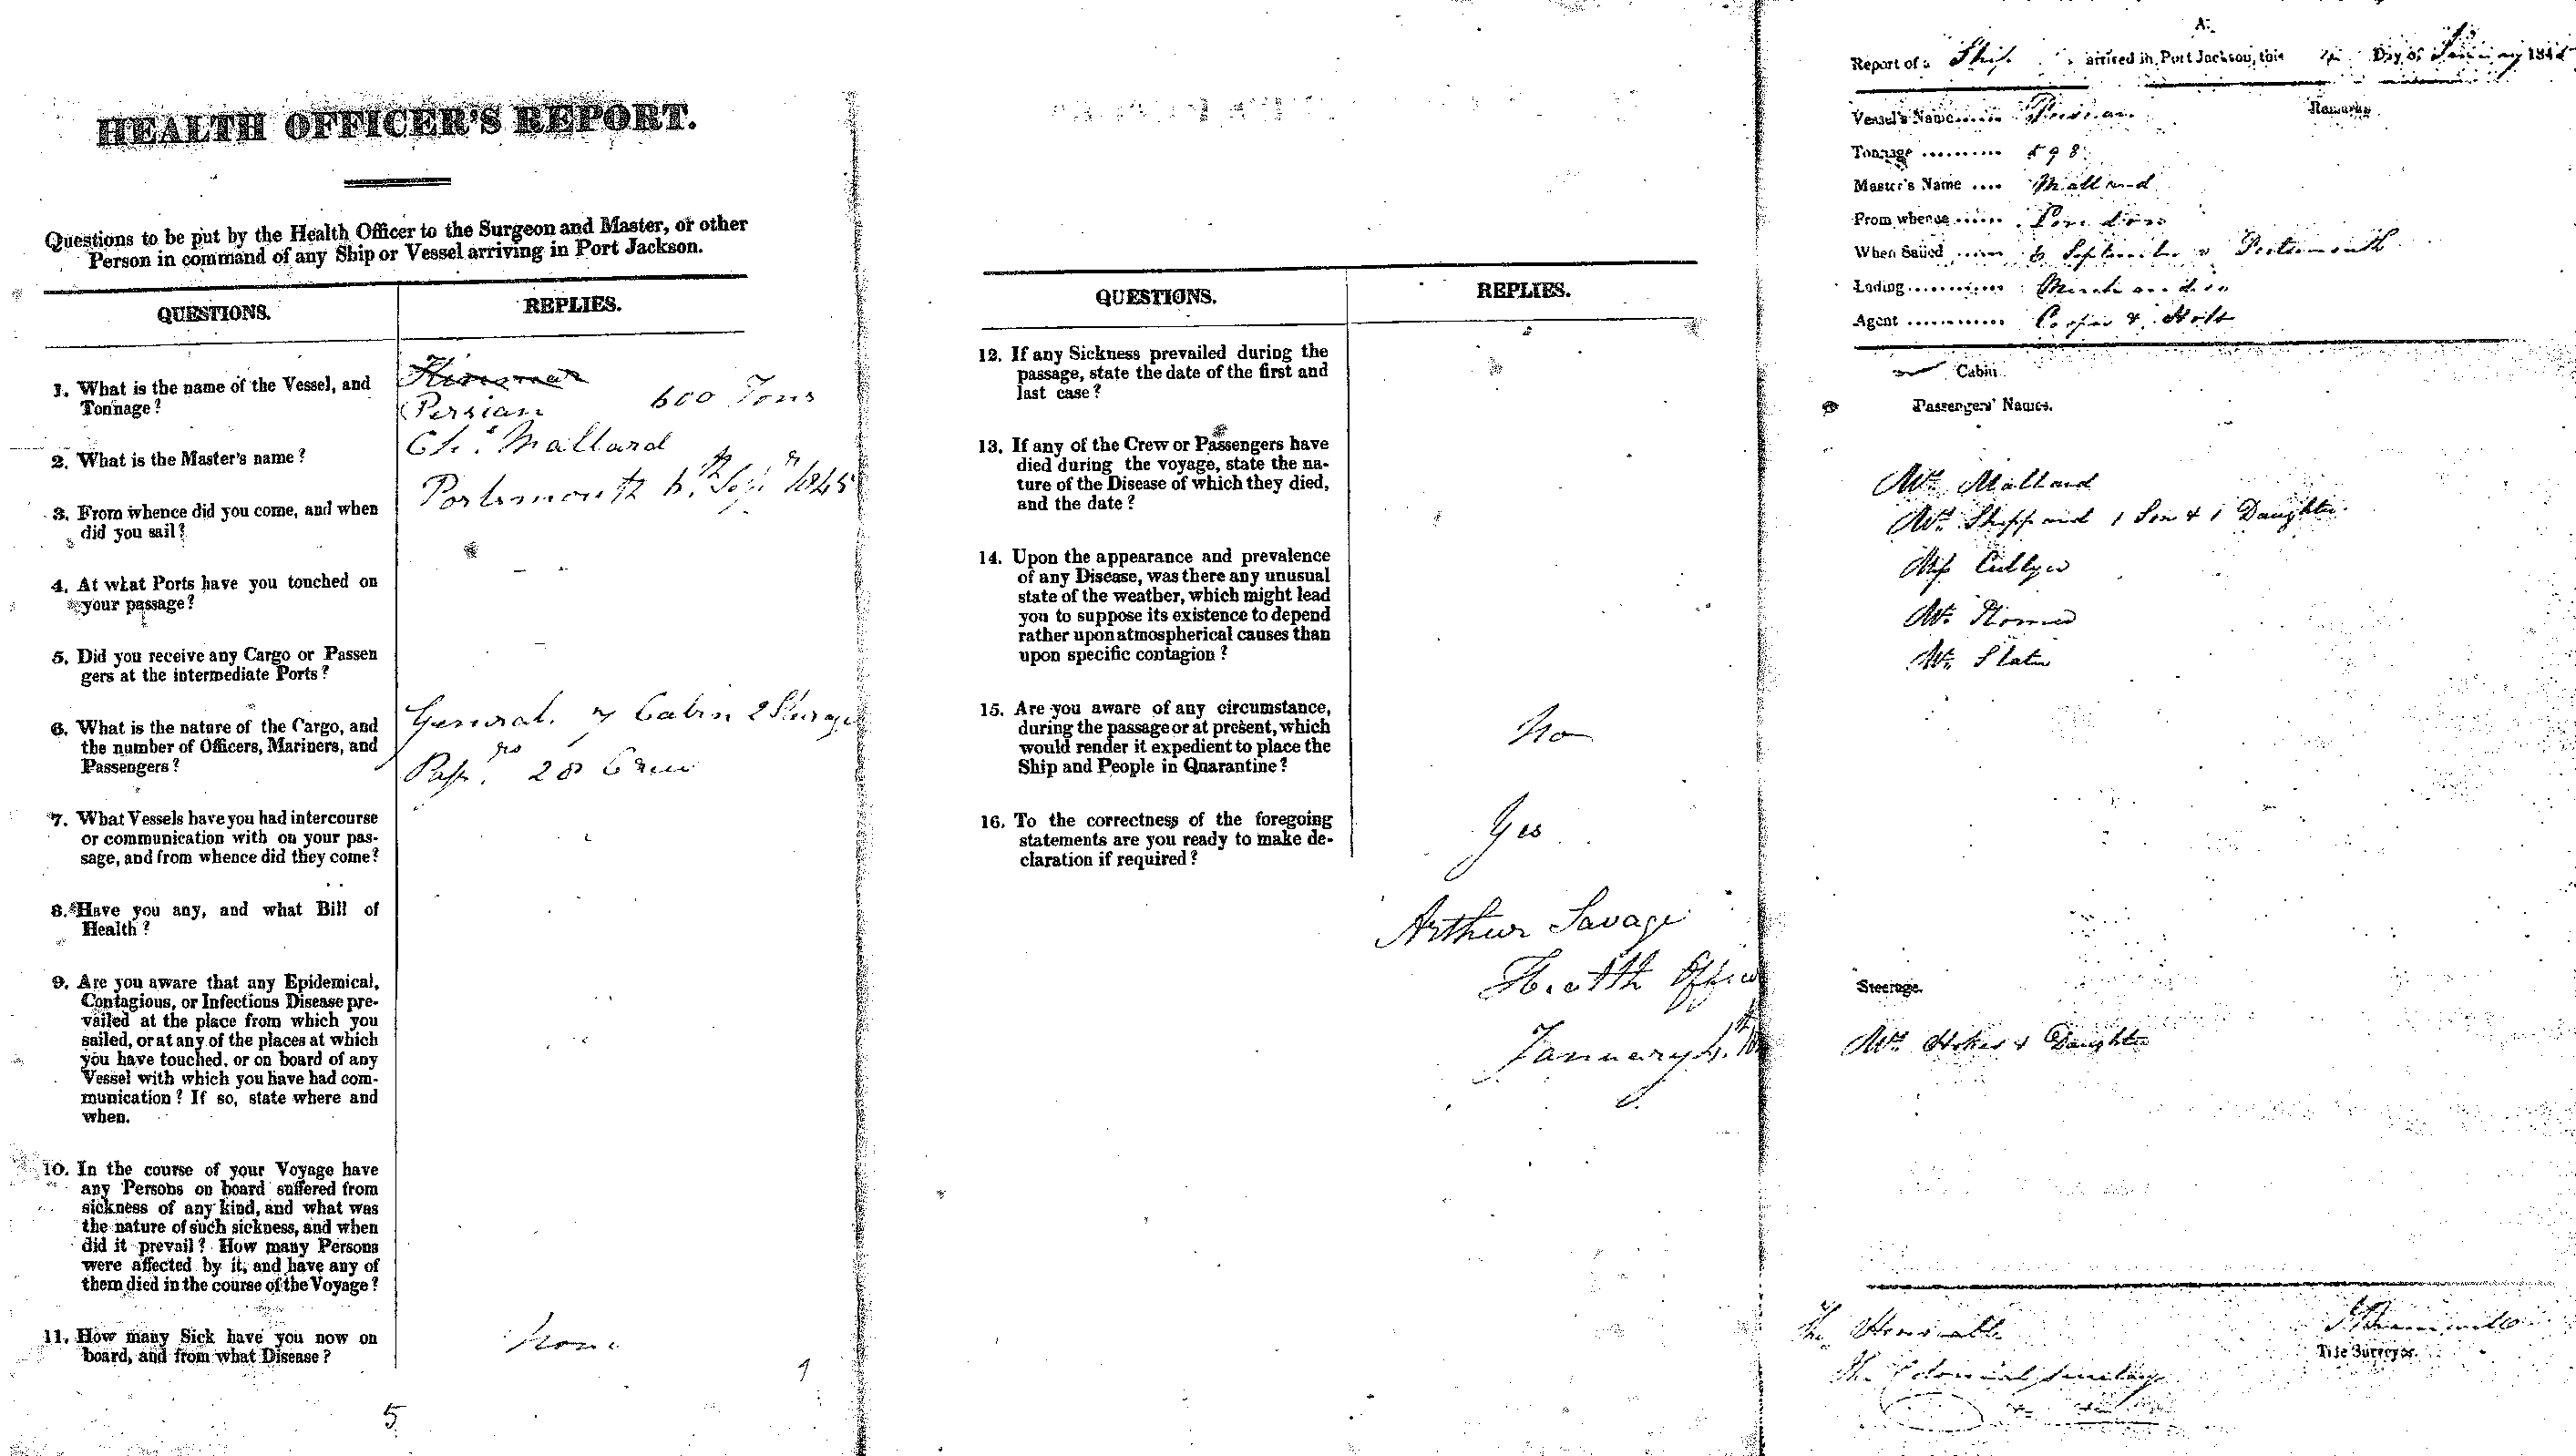 HEALTH OFFICER'S REPORT.
Questions to be put by the Health Officer to the Surgeon and Master, or other
Person in command of any Ship or Vessel arriving in Port Jackson.
QUESTIONS.
REPLIES.
1. What is the name of the Vessel, and
Tonnage?
Persian 600 Tons
2. What is the Master's name?
Chs. Mallard
3. From whence did you come, and when
did you sail?
Portsmouth 6th Sepr 1845
4. At what Ports have you touched on
your passage?
–
5. Did you receive any Cargo or Passen
gers at the intermediate Ports?
–
6. What is the nature of the Cargo, and
the number of Officers, Mariners, and
Passengers?
General. 7 Cabin 2 Steerage
Passrs 28 Crew
7. What Vessels have you had intercourse
or communication with on your pas-
sage, and from whence did they come?
8. Have you any, and what Bill of
Health?
9. Are you aware that any Epidemical,
Contagious, or Infectious Disease pre-
vailed at the place from which you
sailed, or at any of the places at which
you have touched, or on board of any
Vessel with which you have had com-
munication? If so, state where and
when.
10. In the course of your Voyage have
any Persons on board suffered from
sickness of any kind, and what was
the nature of such sickness, and when
did it prevail? How many Persons
were affected by it, and have any of
them died in the course of the Voyage?
11. How many Sick have you now on
board, and from what Disease?
None
5
QUESTIONS.
REPLIES.
12. If any Sickness prevailed during the
passage, state the date of the first and
last case?
13. If any of the Crew or Passengers have
died during the voyage, state the na-
ture of the Disease of which they died,
and the date?
14. Upon the appearance and prevalence
of any Disease, was there any unusual
state of the weather, which might lead
you to suppose its existence to depend
rather upon atmospherical causes than
upon specific contagion?
15. Are you aware of any circumstance,
during the passage or at present, which
would render it expedient to place the
Ship and People in Quarantine?
No
16. To the correctness of the foregoing
statements are you ready to make de-
claration if required?
Yes
Arthur Savage
Health Officer
January 4th
A.
Report of a Ship arrived in Port Jackson, this 4 Day of January 184
Vessel's Name Persian
Remarks
Tonnage 598
Master's Name Mallard
From whence London
When Sailed 6 September Portsmouth
Lading Merchandise
Agent Cooper & Holt
Cabin
Passengers' Names.
Mrs Mallard
Mrs Sheppard 1 Son & 1 Daughter
Miss
Mr.
Mr. Slater
Steerage.
Mrs & Daughter
The Honorable
The Colonial Secretary
Tide Surveyor.